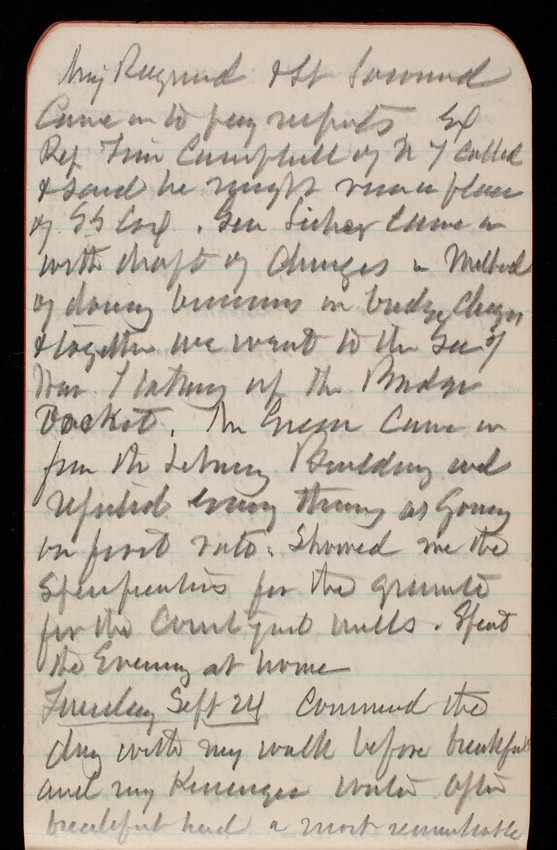 Maj Raymond & Lt
Came in to pay respects. Ex
Rep Tim Campbell of N Y called
& said he might run in place
of S S Cox. Gen came in
with draft of changes in Method
of doing business in bridge
& together we went to the Sec of
War I taking up the Bridge
Docket. Mr Green came in
from the Library Building and
reported every thing as going
on first rate. Showed me the
specifications for the granite
for the Court yard walls. Spent
the Evening at home
Tuesday Sept 24 Commencd the
day with my walk before breakfast
and my Kissingen water After
breakfast had a most remarkable